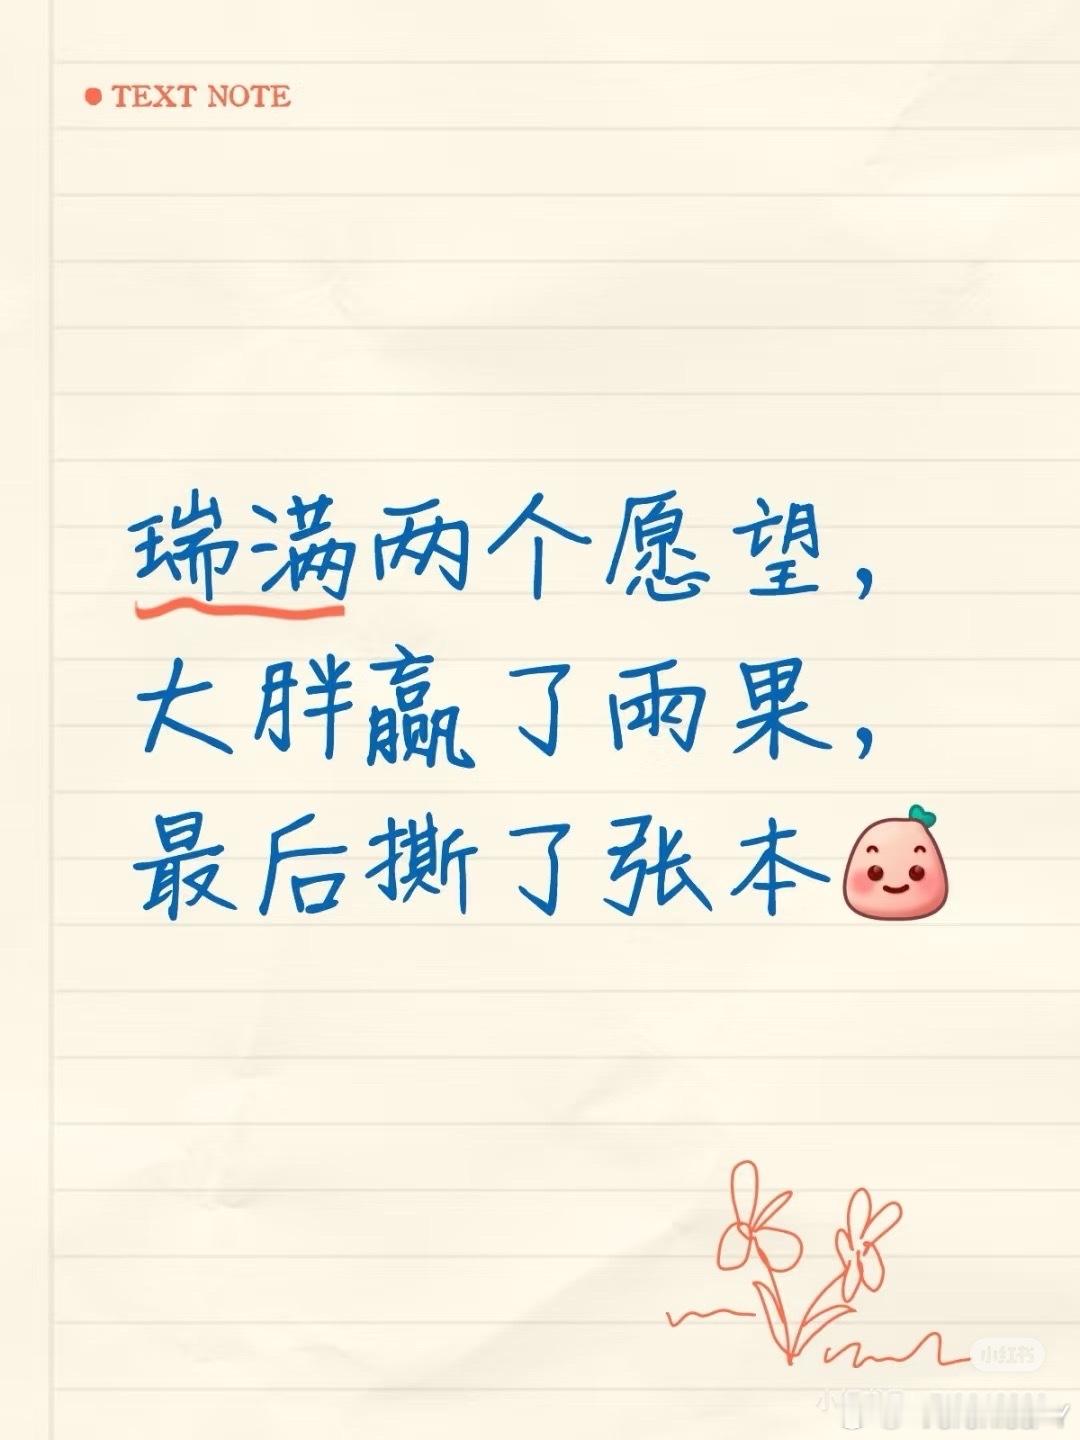 TEXT NOTE
瑞满两个愿望，
大胖赢了雨果，
最后撕了张本
小红书